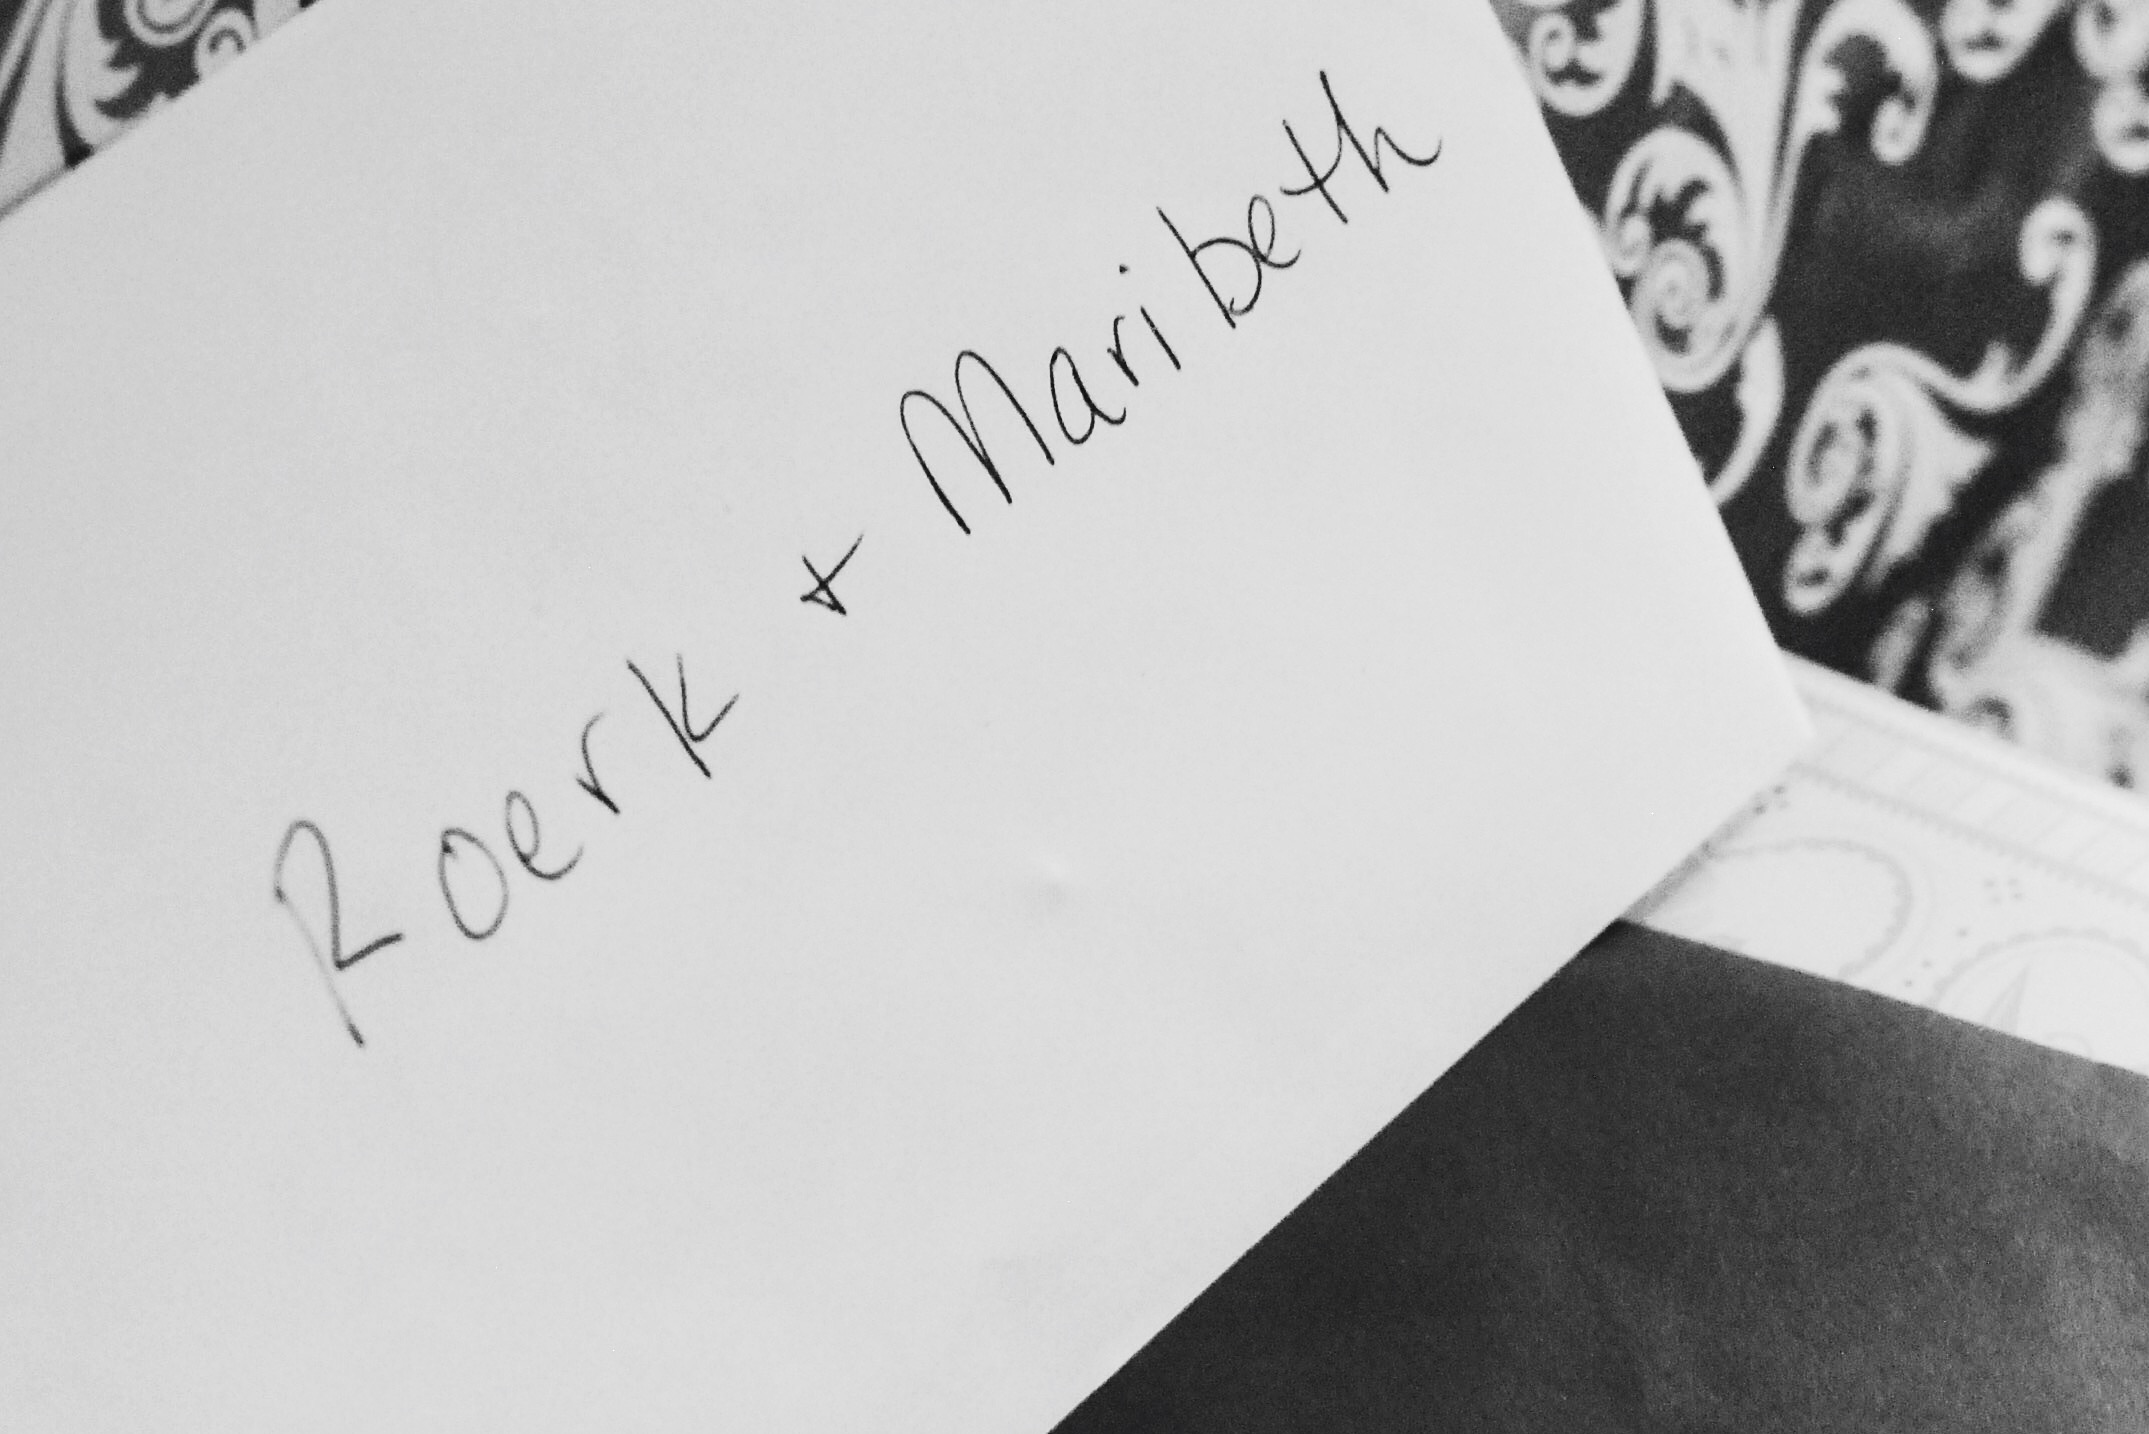 Roerk + Maribeth